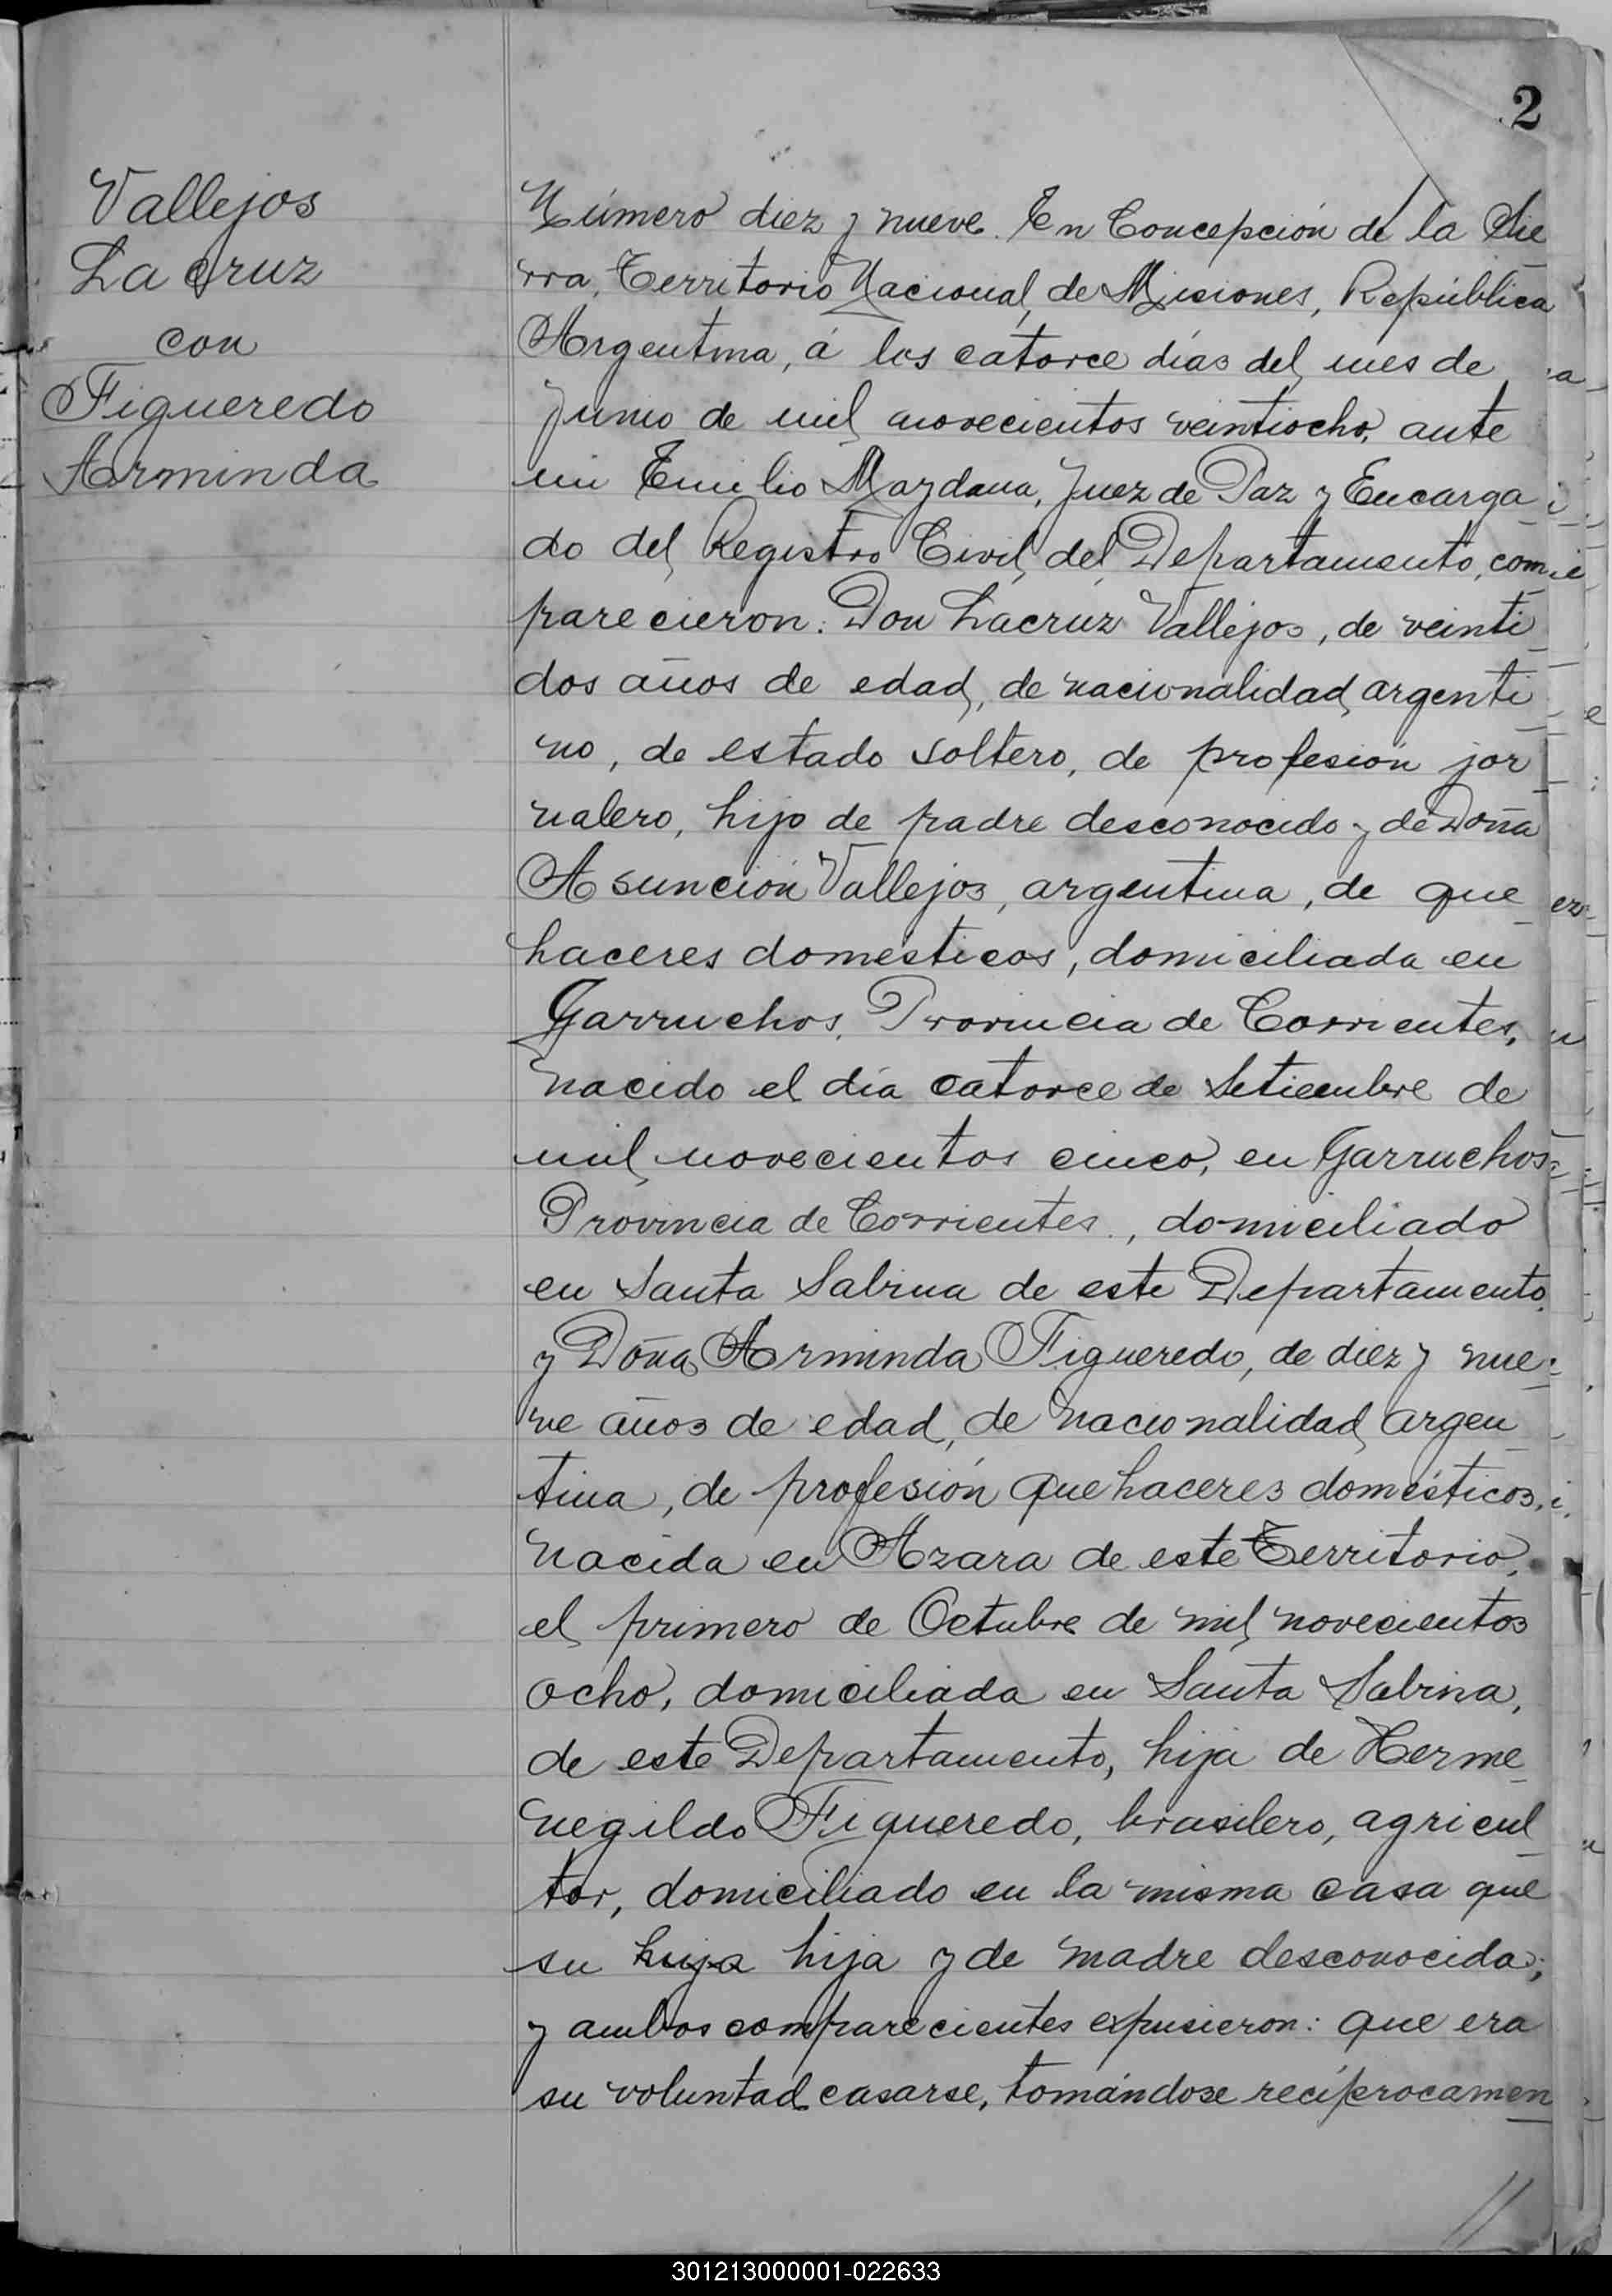 2
Vallejos
Lacruz
con
Figueredo
Arminda
Número diez y nueve. En Concepción de la Sie
rra, Territorio Nacional de Misiones, República
Argentina, á los catorce días del mes de
Junio de mil novecientos veintiocho, ante
mi Emilio Maydana, Juez de Paz y Encarga
do del Registro Civil del Departamento, com
parecieron: Don Lacruz Vallejos, de veinti
dos años de edad, de nacionalidad argenti
no, de estado soltero, de profesión jor
nalero, hijo de padre desconocido y de Doña
Asunción Vallejos, argentina, de que
haceres domésticos, domiciliada en
Garruchos, Provincia de Corrientes,
nacido el día catorce de Setiembre de
mil novecientos cinco, en Garruchos
Provincia de Corrientes., domiciliado
en Santa Sabina de este Departamento,
y Doña Arminda Figueredo, de diez y nue
ve años de edad, de nacionalidad argen
tina, de profesión quehaceres domésticos,
nacida en Azara de este Territorio,
el primero de Octubre de mil novecientos
ocho, domiciliada en Santa Sabina,
de este Departamento, hija de Herme
negildo Figueredo, brasilero, agricul
tor, domiciliado en la misma casa que
su huja hija y de madre desconocida;
y ambos comparecientes expusieron: que era
su voluntad casarse, tomándose recíprocamen
//
301213000001-022633